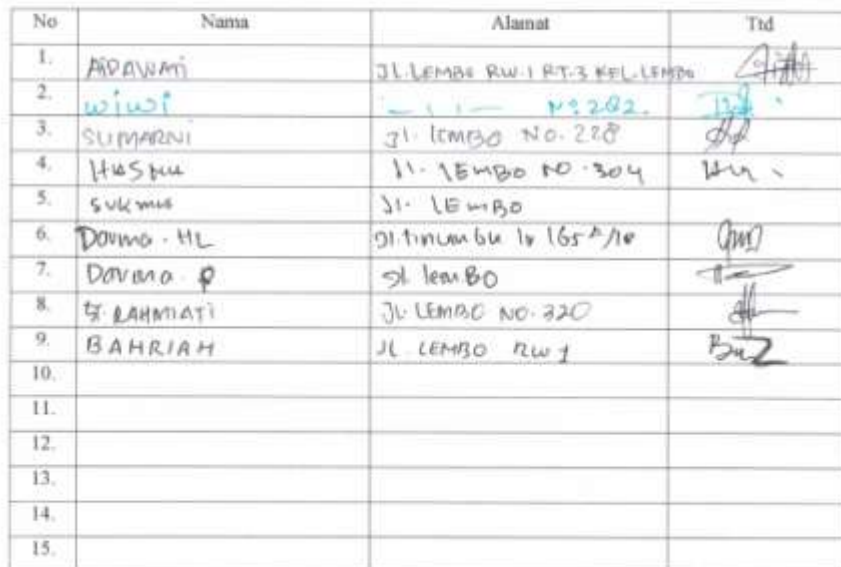 No Nama Alamat Ttd
1. AIDAWATI JL. LEMBO RW.1 RT.3 KEL. LEMBO
2. wiwi — ı ı — No 282.
3. SUMARNI Jl. LEMBO NO. 228
4. HUSNU Jl. LEMBO NO. 304
5. sukmu Jl. LEMBO
6. Darma. HL Jl. tinumbu lr 165 A/10
7. Darma. P Jl lemBO
8. RAHMIATI JL. LEMBO NO. 320
9. BAHRIAH JL LEMBO RW 1
10.
11.
12.
13.
14.
15.